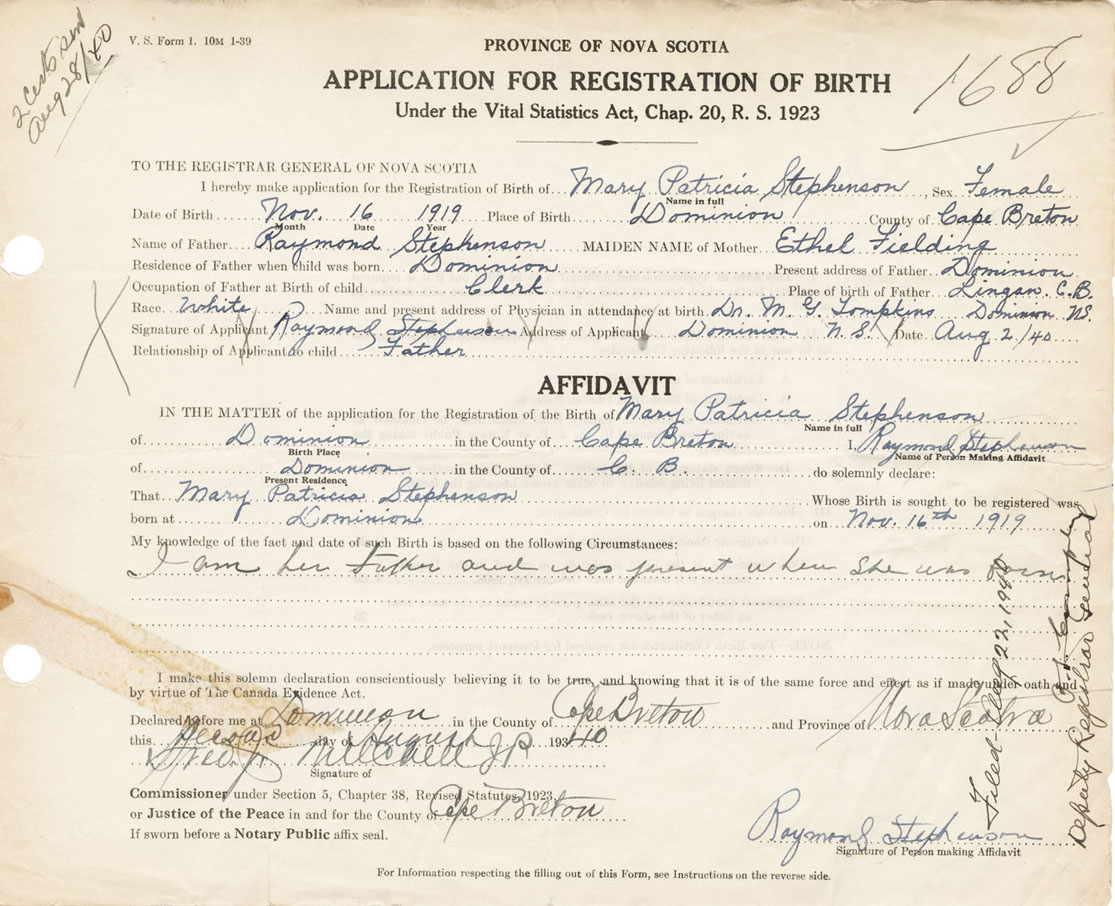 2 Certs sent
Aug 28/40
V. S. Form 1. 10M 1-39
PROVINCE OF NOVA SCOTIA
APPLICATION FOR REGISTRATION OF BIRTH
Under the Vital Statistics Act, Chap. 20, R. S. 1923
1688
TO THE REGISTRAR GENERAL OF NOVA SCOTIA
I hereby make application for the Registration of Birth of Mary Patricia Stephenson, Sex Female
Name in full
Date of Birth Nov. 16 1919 Place of Birth Dominion County of Cape Breton
Month Date Year
Name of Father Raymond Stephenson MAIDEN NAME of Mother Ethel Fielding
Residence of Father when child was born Dominion Present address of Father Dominion
Occupation of Father at Birth of child Clerk Place of birth of Father Lingan. C.B.
Race White Name and present address of Physician in attendance at birth Dr. M. G. Tompkins Dominion NS.
Signature of Applicant Raymond Stephenson Address of Applicant Dominion N.S. Date Aug 2/40
Relationship of Applicant to child Father
AFFIDAVIT
IN THE MATTER of the application for the Registration of the Birth of Mary Patricia Stephenson
Name in full
of Dominion in the County of Cape Breton I, Raymond Stephenson
Birth Place Name of Person Making Affidavit
of Dominion in the County of C. B. do solemnly declare:
Present Residence
That Mary Patricia Stephenson Whose Birth is sought to be registered was
born at Dominion on Nov. 16th 1919
My knowledge of the fact and date of such Birth is based on the following Circumstances:
I am her Father and was present when she was born
I make this solemn declaration conscientiously believing it to be true, and knowing that it is of the same force and effect as if made under oath and
by virtue of The Canada Evidence Act.
Declared before me at Dominion in the County of Cape Breton and Province of Nova Scotia
this Second day of August 193 40
Mitchell JP
Signature of
Commissioner under Section 5, Chapter 38, Revised Statutes 1923,
or Justice of the Peace in and for the County of Cape Breton
If sworn before a Notary Public affix seal.
Raymond Stephenson
Signature of Person making Affidavit
For Information respecting the filling out of this Form, see Instructions on the reverse side.
Filed - Aug 22, 1940
Deputy Registrar General